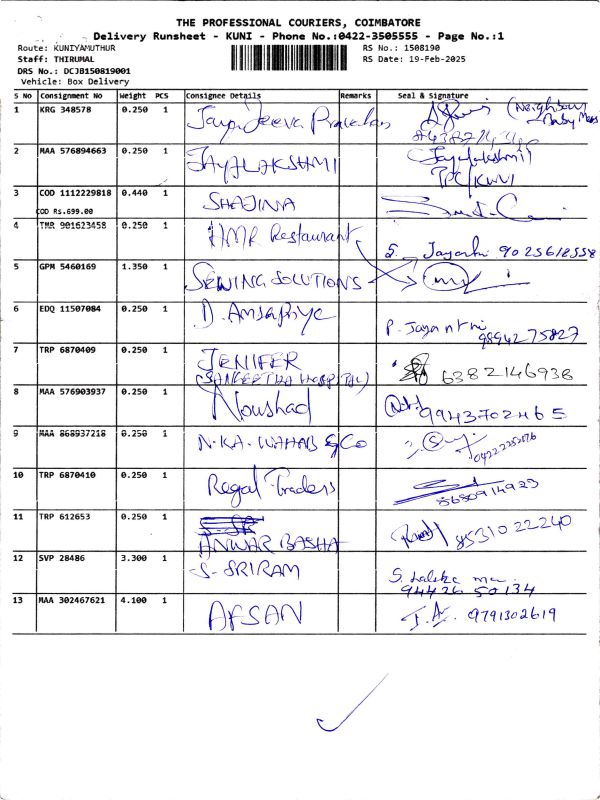 THE PROFESSIONAL COURIERS, COIMBATORE
Delivery Runsheet - KUNI - Phone No.:0422-3505555 - Page No.:1
Route: KUNIYAMUTHUR RS No.: 1508190
Staff: THIRUMAL RS Date: 19-Feb-2025
DRS No.: DCJB150819001
Vehicle: Box Delivery
S No Consignment No Weight PCS Consignee Details Remarks Seal & Signature
1 KRG 348578 0.250 1 Jaya Jeeva Prakash (Neighbour
Baby Mess
2 MAA 576894663 0.250 1 JAYALAKSHMI Jayalakshmi
TPC/KUNI
3 COD 1112229818 0.440 1 SHAJINA
COD Rs.699.00
4 TMR 901623458 0.250 1 HMR Restaurant S. Jayanthi 9025612558
5 GPM 5460169 1.350 1 SEWING SOLUTIONS
6 EDQ 11507084 0.250 1 D. Ansapriya P. Jayanthi
9894275827
7 TRP 6870409 0.250 1 JENIFER 6382146938
(SANGEETHA HOSPITAL)
8 MAA 576903937 0.250 1 Noushad 9943702465
9 MAA 868937218 0.250 1 N.KA. WAHAB & Co
10 TRP 6870410 0.250 1 Regal Traders 8680914923
11 TRP 612653 0.250 1 S-SR
ANWAR BASHA 8531022240
12 SVP 28486 3.300 1 S-SRIRAM S.
94426 50134
13 MAA 302467621 4.100 1 AFSAN J.A. 9791302619